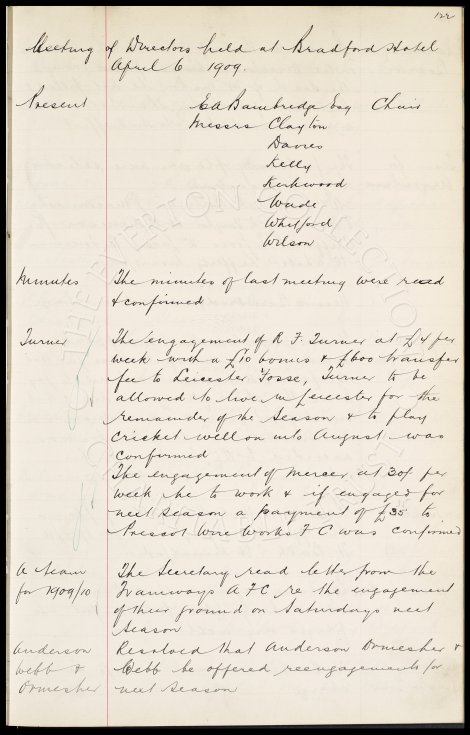 122
Meeting of Directors held at Bradford Hotel
April 6 1909.
Present EA Bainbridge Esq Chair
Messrs Clayton
Davies
Kelly
Kirkwood
Wade
Whitford
Wilson
Minutes The minutes of last meeting were read
& confirmed
Turner The engagement of R. F. Turner at £4 per
week with a £10 bonus & £600 transfer
fee to Leicester Fosse, Turner to be
allowed to live in Leicester for the
remainder of the Season & to play
Cricket well on into August was
confirmed
The engagement of Mercer at 30/ per
week he to work & if engaged for
next Season a payment of £35 to
Prescot Wire Works F C was confirmed
A team The Secretary read letter from the
for 1909/10 Tramways A F C re the engagement
of their ground on Saturdays next
Season
Anderson Resolved that Anderson Ormesher &
Webb & Webb be offered reengagements for
Ormesher next Season
THE EVERTON COLLECTION